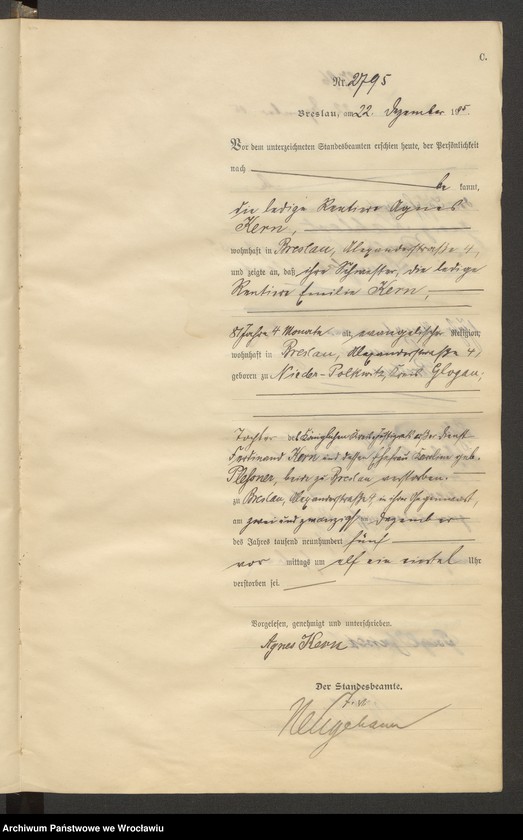 C.
Nr. 2795
Breslau, am 22. Dezember 1905
Vor dem unterzeichneten Standesbeamten erschien heute, der Persönlichkeit
nach be kannt,
die ledige Rentiere Agnes
Kern,
wohnhaft in Breslau, Alexanderstraße 4,
und zeigte an, daß ihre Schwester, die ledige
Rentiere Emilie Kern,
81 Jahre 4 Monate alt, evangelischer Religion,
wohnhaft in Breslau, Alexanderstraße 4,
geboren zu Nieder-Polkwitz, Kreis Glogau,
Tochter des Königlichen außer Dienst
Ferdinand Kern und dessen Ehefrau Karoline geb.
Plessner, beide zu Breslau verstorben
zu Breslau, Alexanderstraße 4, in ihrer Gegenwart,
am zwei und zwanzigsten Dezember
des Jahres tausend neunhundert fünf
vor mittags um elf ein viertel Uhr
verstorben sei.
Vorgelesen, genehmigt und unterschrieben.
Agnes Kern
Der Standesbeamte.
Archiwum Państwowe we Wrocławiu